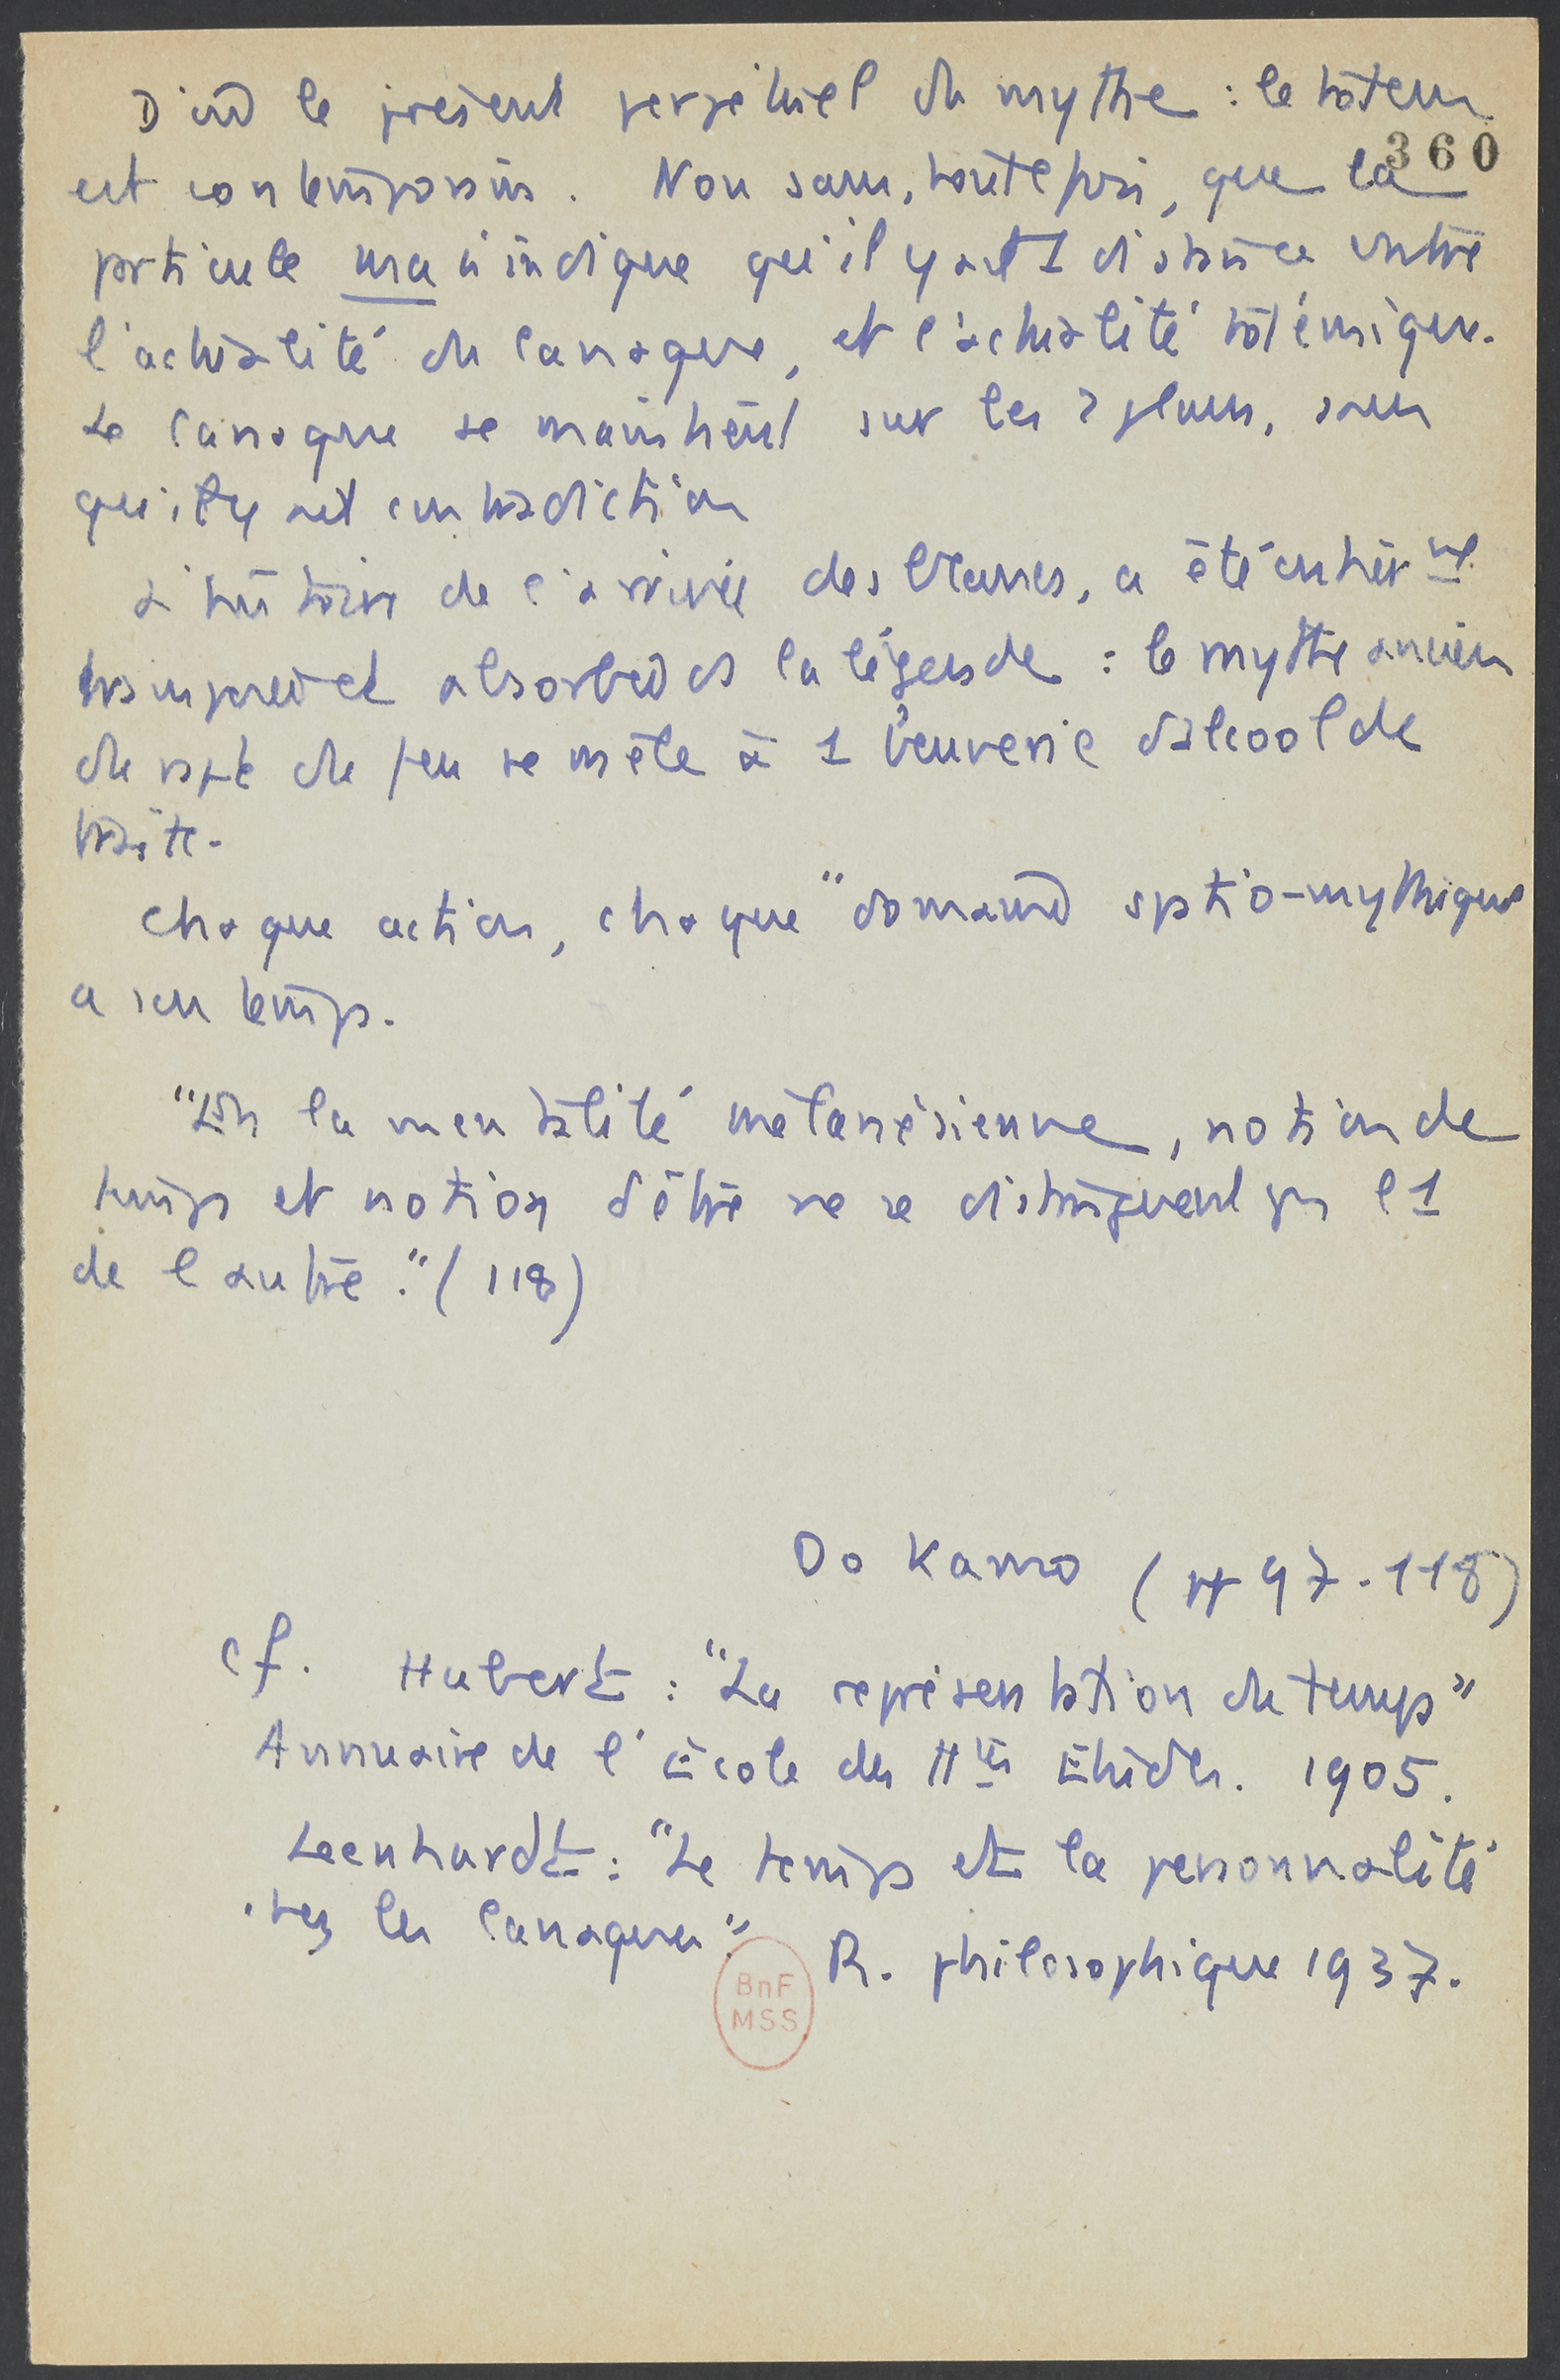 D'où le présent perpétuel du mythe : le totem
360
est contemporain. Non sans, toutefois, que la
particule ma n'indique qu'il y ait 1 distance entre
l'actualité du canaque, et l'actualité totémique.
Le canaque se maintient sur les 2 plans, sans
qu'il y ait contradiction
L'histoire de l'arrivée des blancs, a été entièrmt
transposée et absorbée ds la légende : le mythe ancien
du rapt du feu se mêle à 1 beuverie d'alcool de
traite.
Chaque action, chaque "domaine spatio-mythique
a son temps.
"Ds la mentalité mélanésienne, notion de
temps et notion d'être ne se distinguent pas l'1
de l'autre." (118)
Do Kamo (pp 97-118)
cf. Hubert : "La représentation du temps"
Annuaire de l'École des Htes Études. 1905.
Leenhardt : "Le temps et la personnalité
chez les canaques". R. philosophique 1937.
BnF
MSS